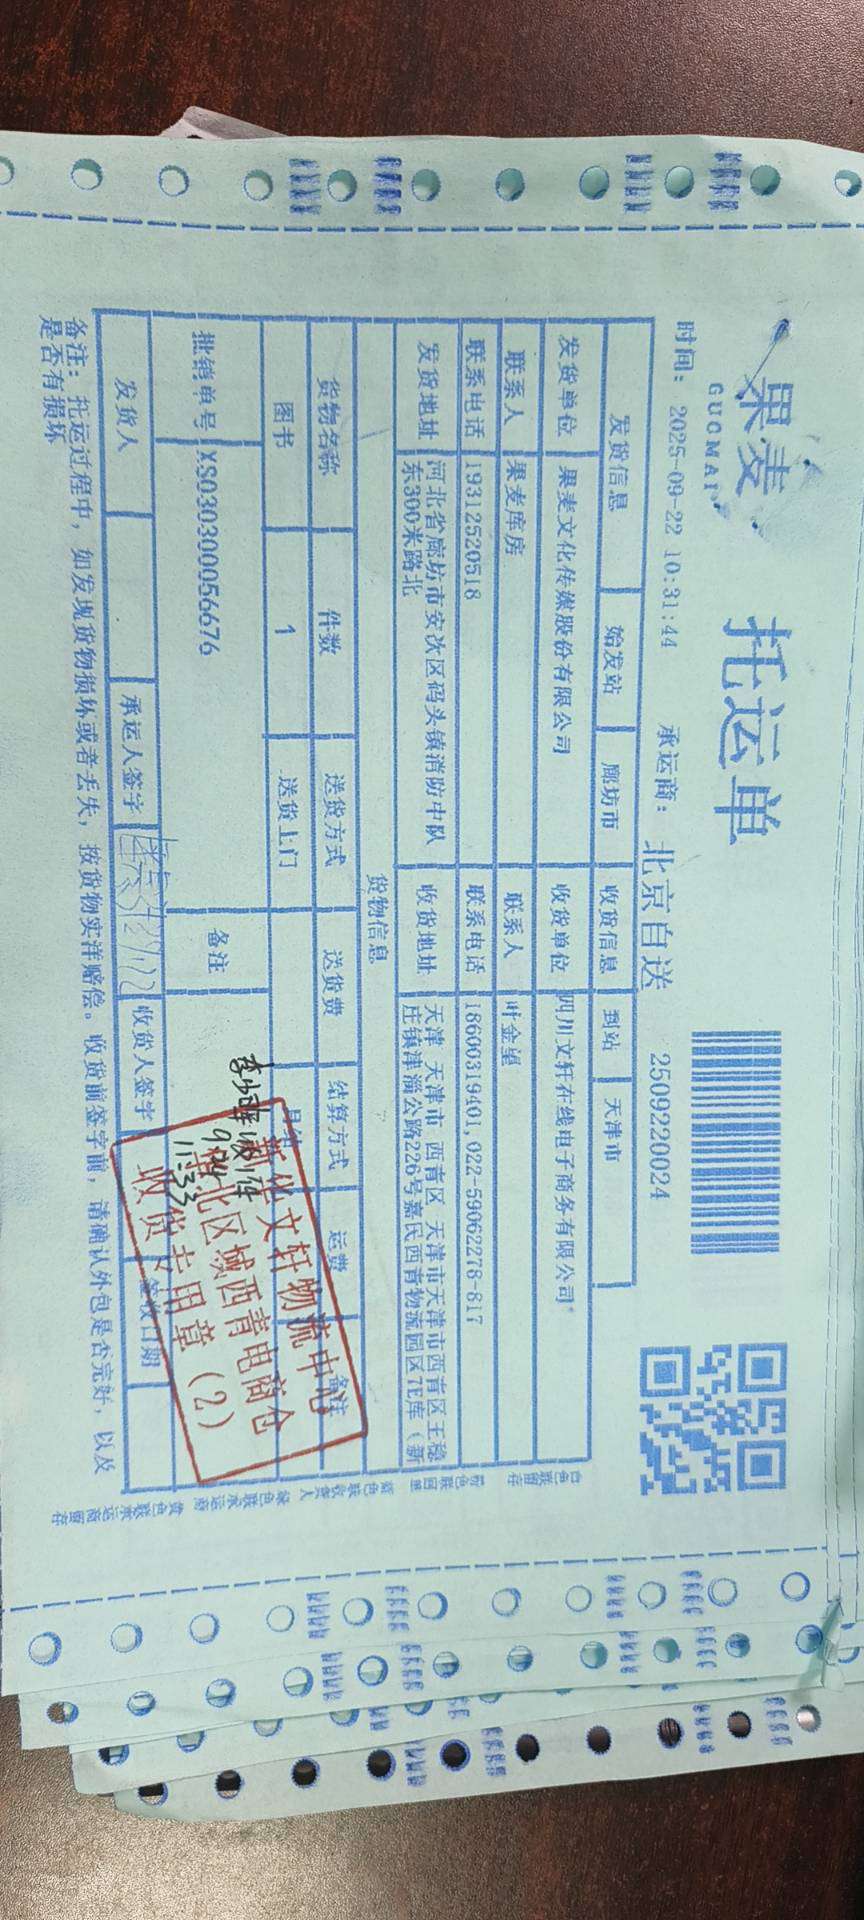 果麦
GUOMAI
托运单
时间：2025-09-22 10:31:44 承运商：北京自送 2509220024
发货信息 始发站 廊坊市 收货信息 到站 天津市
发货单位 果麦文化传媒股份有限公司 收货单位 四川文轩在线电子商务有限公司
联系人 果麦库房 联系人 叶金星
联系电话 19312520518 联系电话 18600319401,022-59062278-817
发货地址 河北省廊坊市安次区码头镇消防中队 收货地址 天津 天津市 西青区 天津市天津市西青区王稳
东300米路北 庄镇津淄公路226号嘉民西青物流园区7E库（新
货物信息
货物名称 件数 送货方式 送货费 结算方式 运费 备注
图书 1 送货上门 月结
批销单号 XS030300056676 备注
发货人 承运人签字 收货人签字 签收日期
备注：托运过程中，如发现货物损坏或者丢失，按货物实洋赔偿。收货前签字前，请确认外包是否完好，以及
是否有损坏
白色联留存 粉色联回单 蓝色联收货人 绿色联承运商 黄色联承运商留存
新华文轩物流中心
华北区域西青电商仓
收货专用章（2）
收1件
9.24
11:33